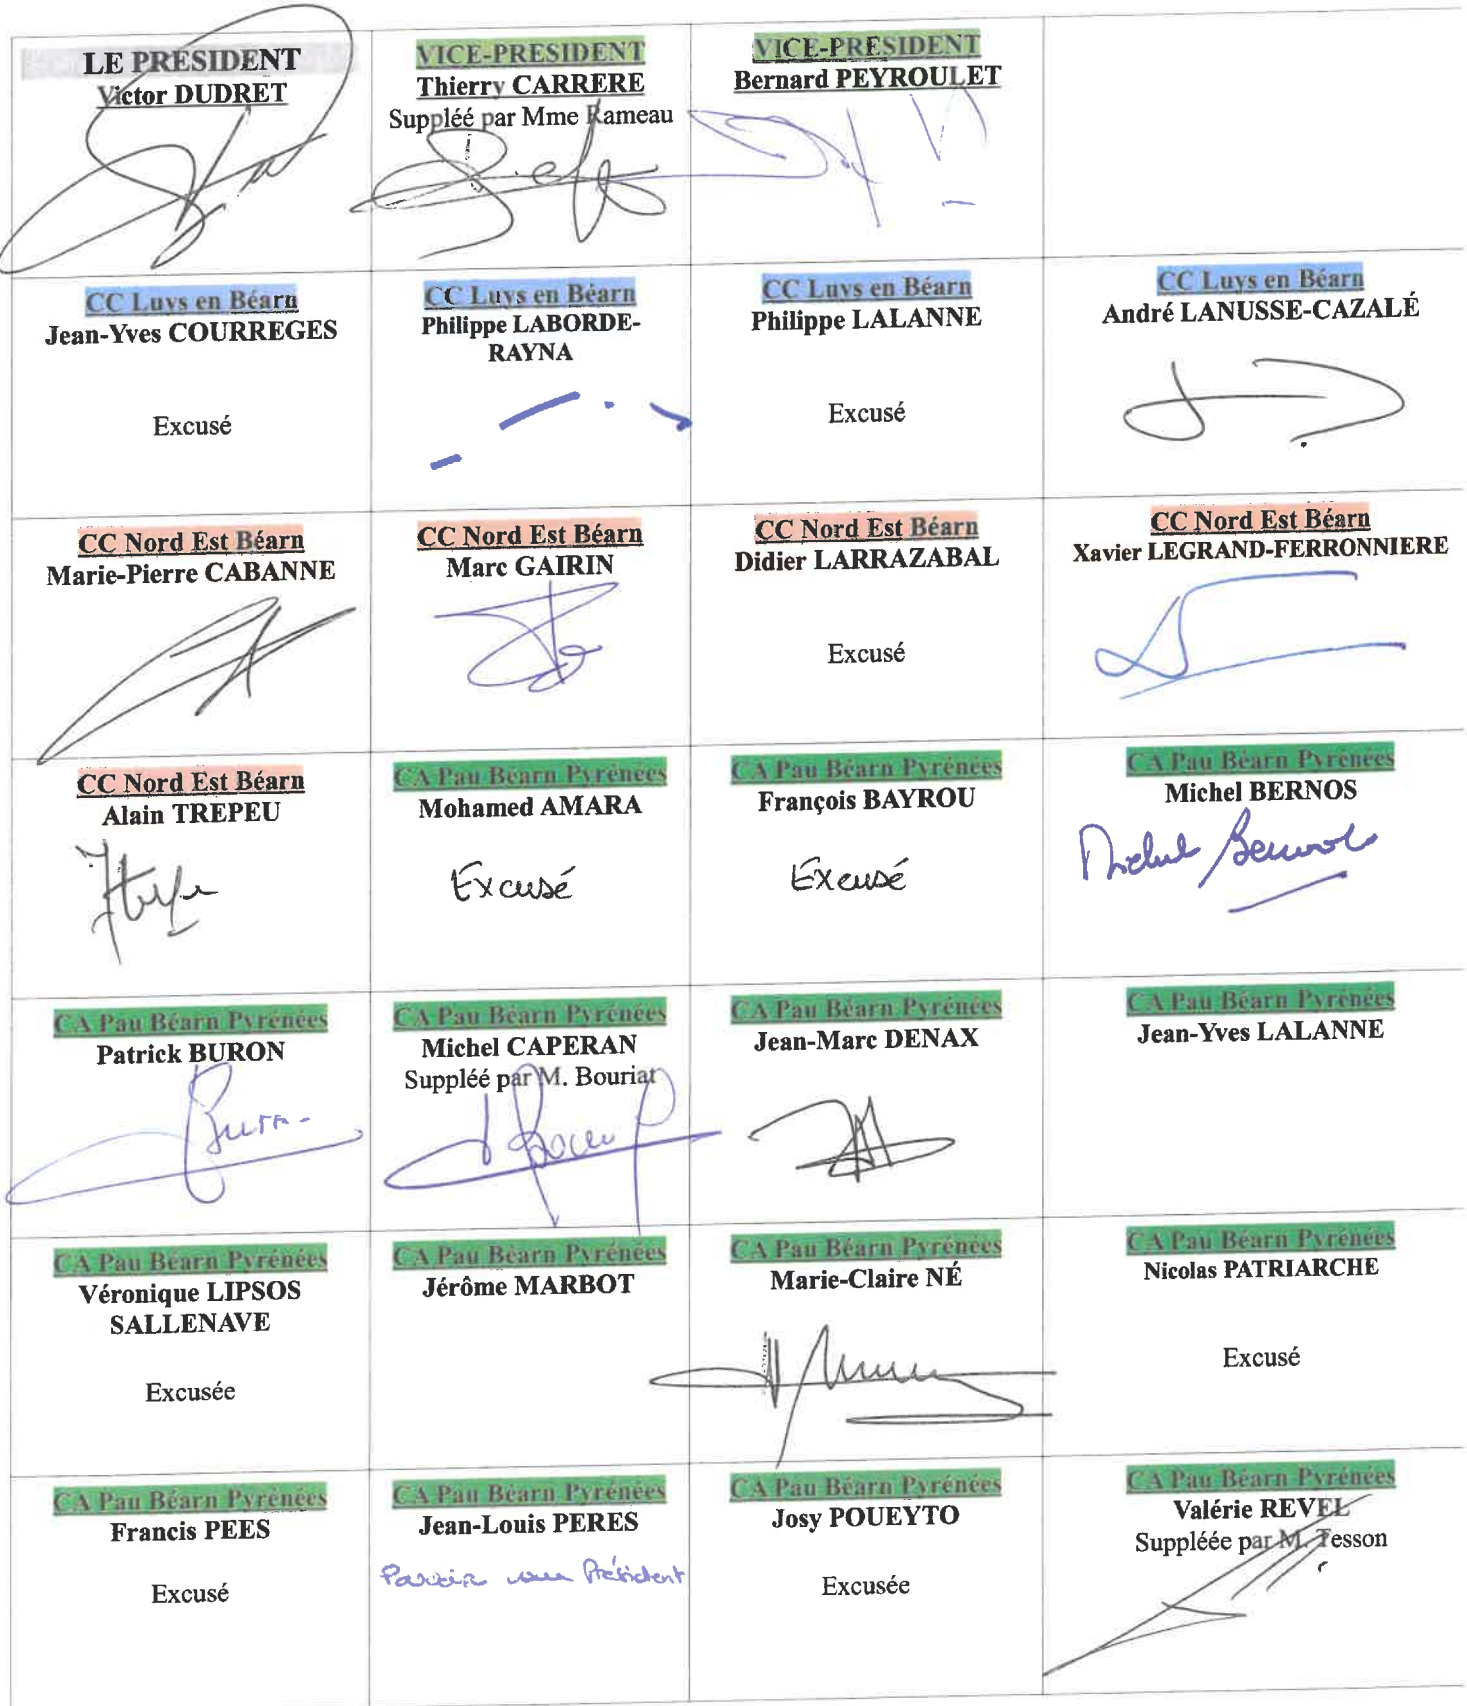 LE PRESIDENT
Victor DUDRET
VICE-PRESIDENT
Thierry CARRERE
Suppléé par Mme Rameau
VICE-PRESIDENT
Bernard PEYROULET
CC Luys en Béarn
Jean-Yves COURREGES
Excusé
CC Luys en Béarn
Philippe LABORDE-
RAYNA
CC Luys en Béarn
Philippe LALANNE
Excusé
CC Luys en Béarn
André LANUSSE-CAZALÉ
CC Nord Est Béarn
Marie-Pierre CABANNE
CC Nord Est Béarn
Marc GAIRIN
CC Nord Est Béarn
Didier LARRAZABAL
Excusé
CC Nord Est Béarn
Xavier LEGRAND-FERRONNIERE
CC Nord Est Béarn
Alain TREPEU
CA Pau Béarn Pyrénées
Mohamed AMARA
Excusé
CA Pau Béarn Pyrénées
François BAYROU
Excusé
CA Pau Béarn Pyrénées
Michel BERNOS
Michel Bernos
CA Pau Béarn Pyrénées
Patrick BURON
CA Pau Béarn Pyrénées
Michel CAPERAN
Suppléé par M. Bouriat
CA Pau Béarn Pyrénées
Jean-Marc DENAX
CA Pau Béarn Pyrénées
Jean-Yves LALANNE
CA Pau Béarn Pyrénées
Véronique LIPSOS
SALLENAVE
Excusée
CA Pau Béarn Pyrénées
Jérôme MARBOT
CA Pau Béarn Pyrénées
Marie-Claire NÉ
CA Pau Béarn Pyrénées
Nicolas PATRIARCHE
Excusé
CA Pau Béarn Pyrénées
Francis PEES
Excusé
CA Pau Béarn Pyrénées
Jean-Louis PERES
Président
CA Pau Béarn Pyrénées
Josy POUEYTO
Excusée
CA Pau Béarn Pyrénées
Valérie REVEL
Suppléée par M. Tesson